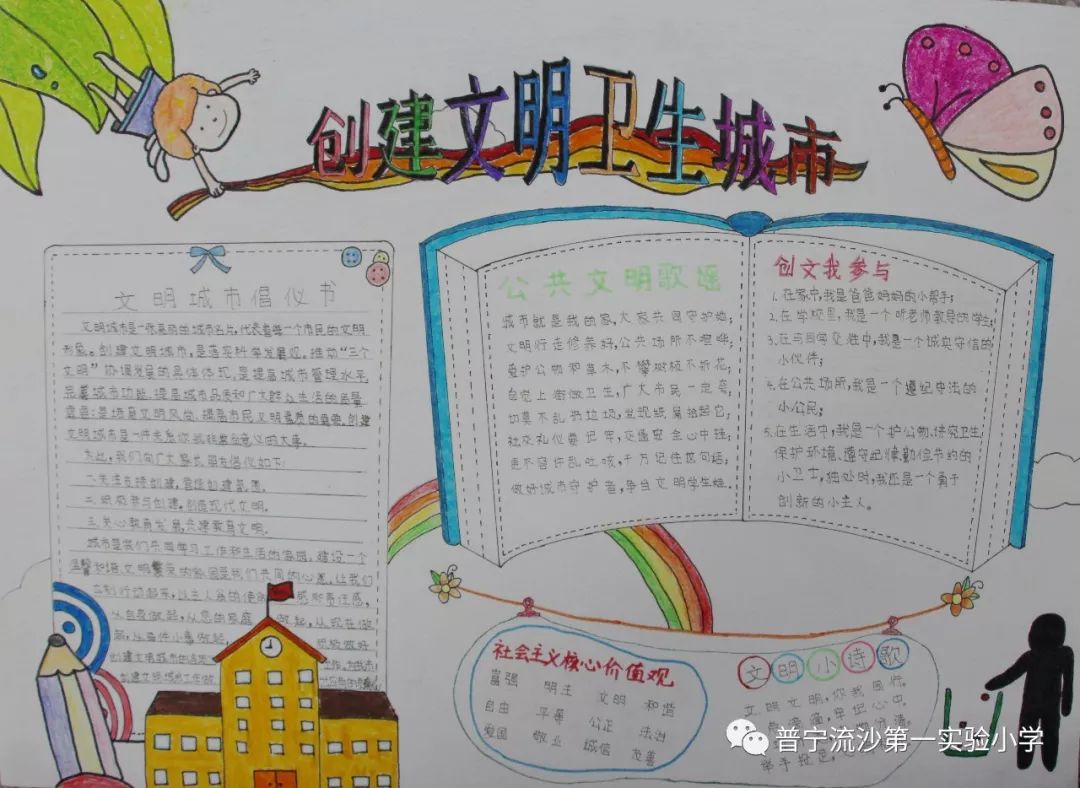 创建文明卫生城市
文明城市倡仪书
文明城市是一张亮丽的城市名片,代表着每一个市民的文明
形象。创建文明城市,是落实科学发展观。推动“三个
文明”协调发展的具体体现,是提高城市管理水平,
完善城市功能、提高城市品质和广大群众生活的质量
文明城市是一件关系你我
为此,我们向广大家长朋友倡仪如下:
一、关注支持创建,营造创建氛围。
二、积极参与创建,创造现代文明。
三、关心教育发展,共建教育文明。
城市是我们共同学习工作和生活的家园,建设一个
温馨和谐,文明繁荣的家园是我们共同的心愿,让我们
立刻行动起来,以主人翁的使 感和责任感,
从自身做起,从您的家庭 做起,从现在做
起,从每件小事做起, 积极做好
公共文明歌谣
城市就是我的家,大家共同守护她;
文明行走修养好,公共场所不喧哗;
爱护公物和草木,不攀树枝不折花;
自觉上街做卫生,广大市民一定夸;
切莫不乱扔垃圾,发现纸屑拾起它;
社交礼仪要记牢,交通安全心中强;
更不容许乱吐咳,千万记住这句话;
做好城市守护者,争当文明学生娃。
创文我参与
1.在家中,我是爸爸妈妈的小帮手;
2.在学校里,我是一个听老师教导的学生;
3.在与同学交往中,我是一个诚实守信的
小伙伴;
4.在公共场所,我是一个遵纪守法的
小公民;
5.在生活中,我是一个护公物、讲究卫生,
保护环境、遵守纪律勤俭节约的
小卫士,独处时,我还是一个勇于
创新的小主人。
社会主义核心价值观
富强 明主 文明 和谐
自由 平等 公正 法治
爱国 敬业 诚信 友善
文明小诗歌
文明文明,你我同行,
牢记心中,
举手投足,
普宁流沙第一实验小学